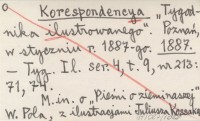 Korespondencya „Tygod-
nika ilustrowanego". Poznań,
w styczniu r. 1887-go. 1887.
— Tyg. Il. ser. 4, t. 9, nr 213:
71, 74.
M. in. o „Pieśni o ziemi naszej"
W. Pola, z ilustracjami Juliusza Kossaka